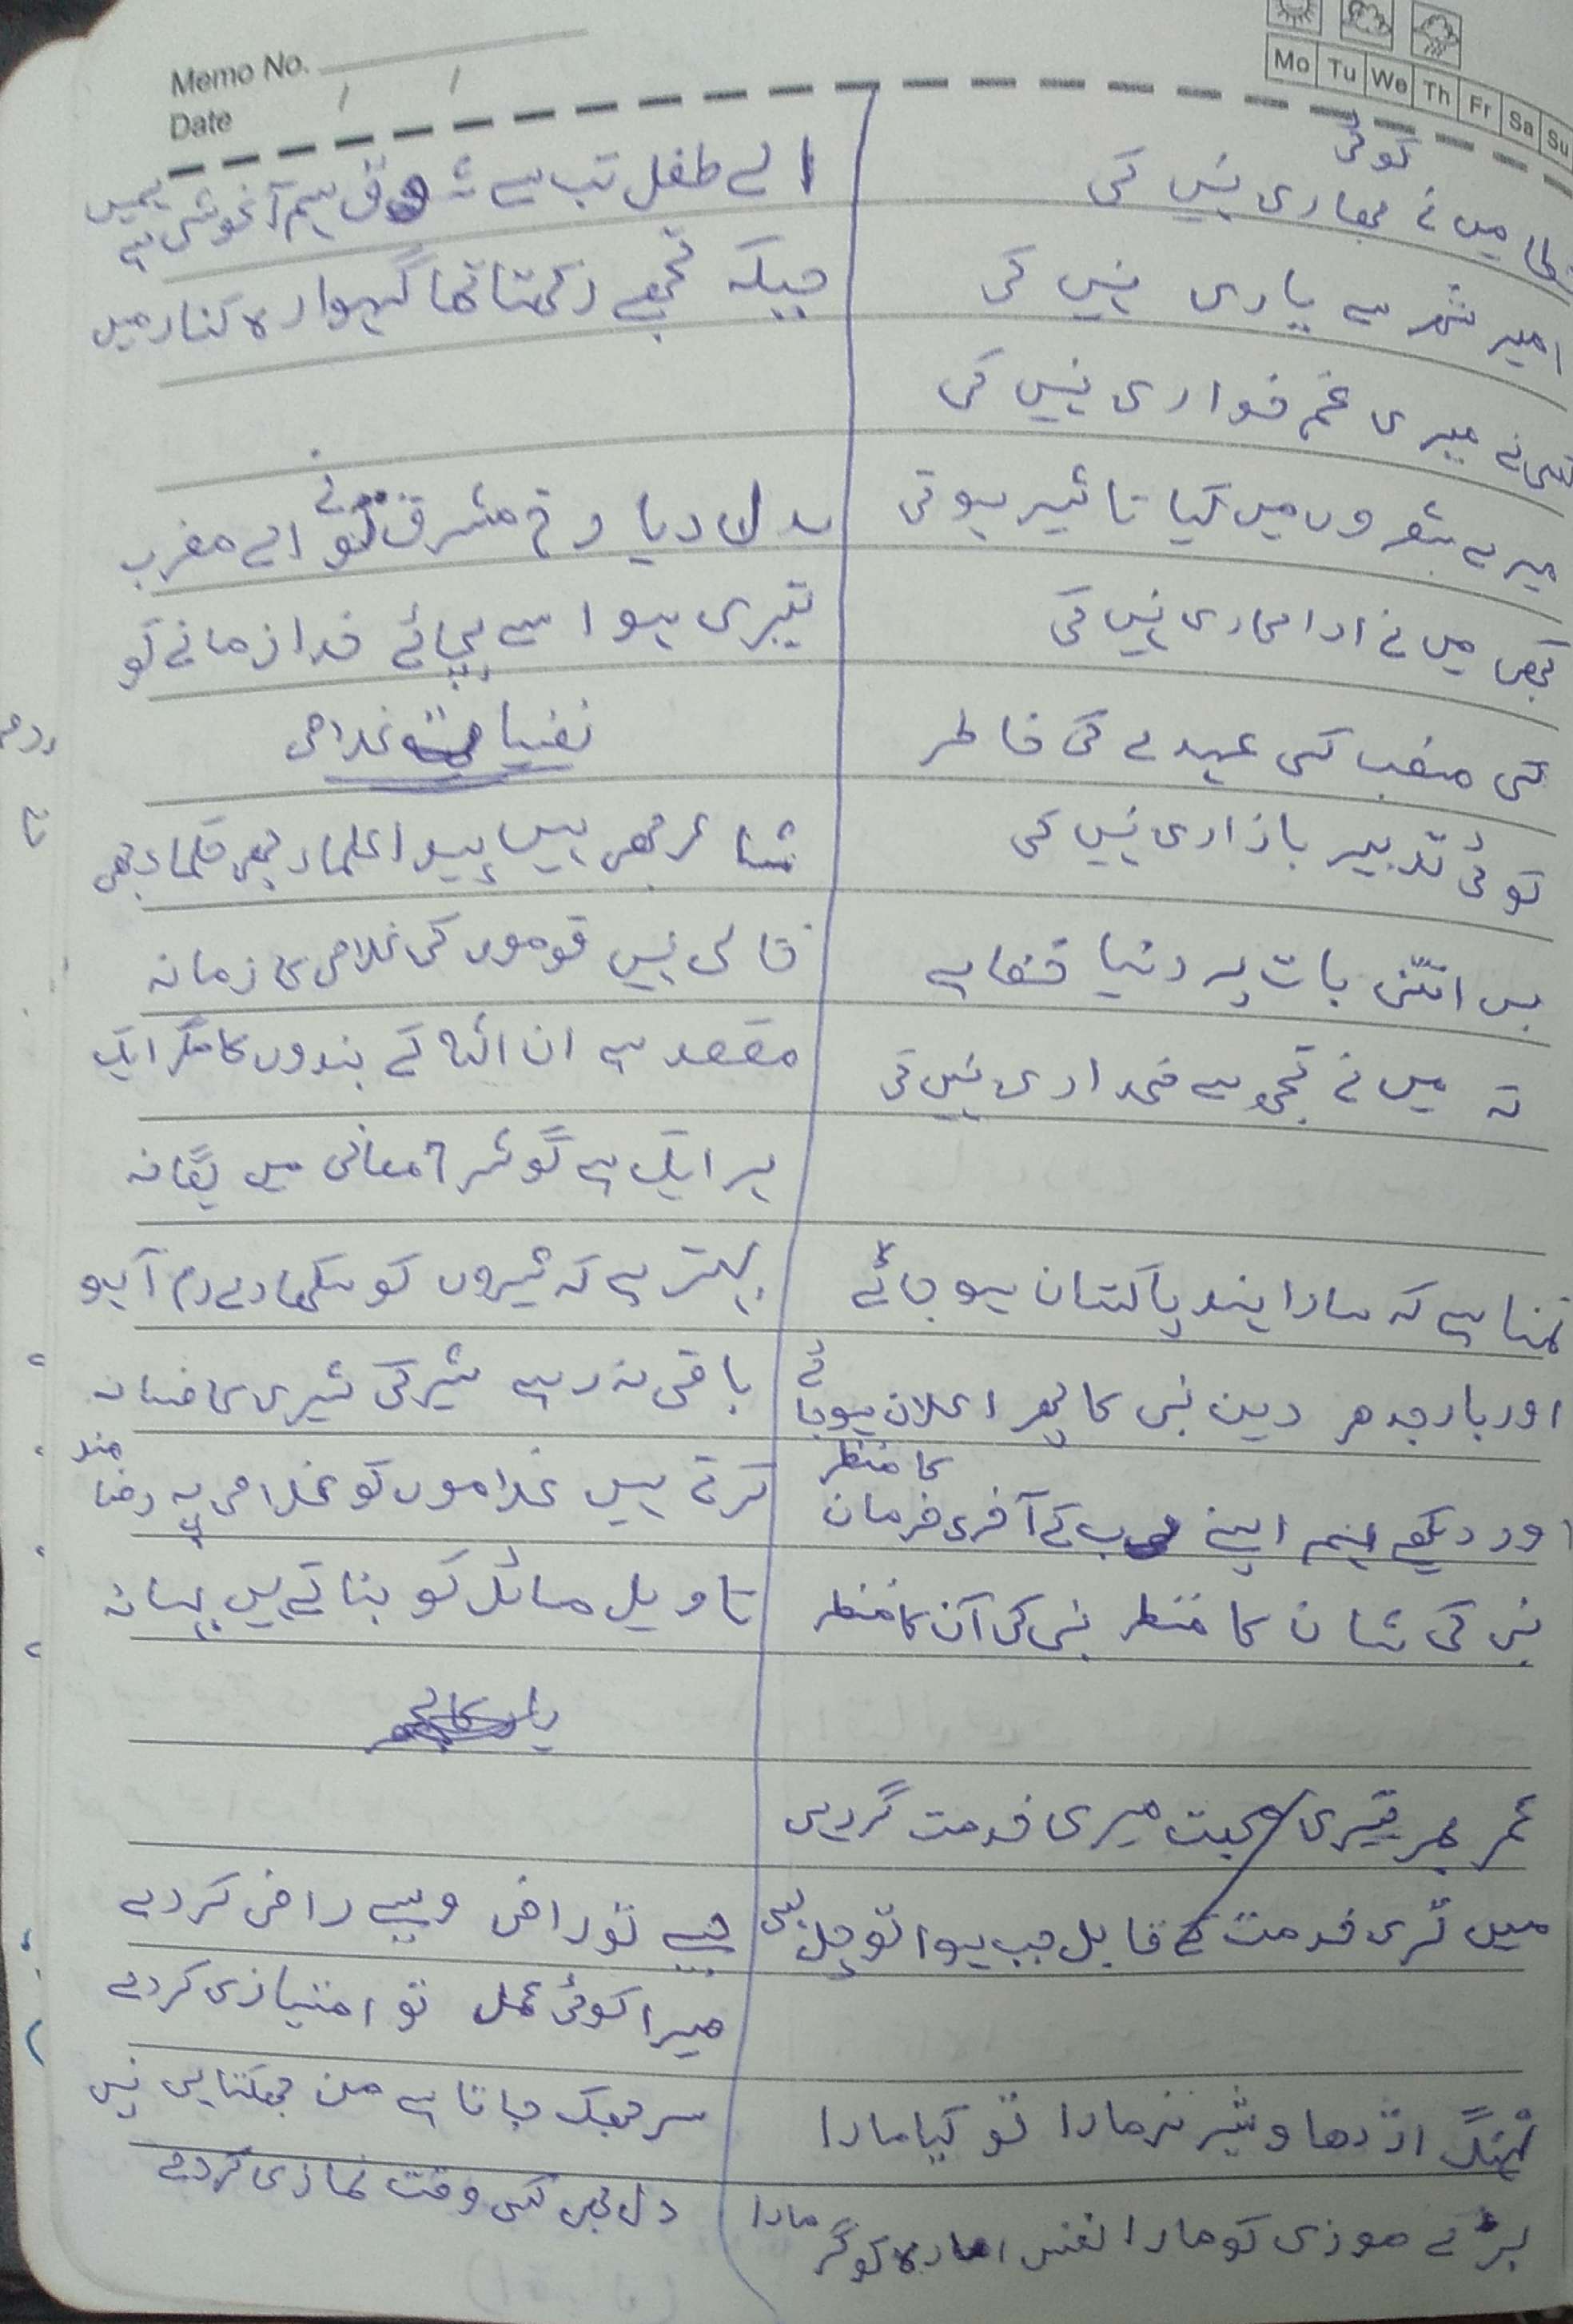 Memo No.
Date / /
Mo Tu We Th Fr Sa Su
کوئی
میں نے بھاری نہیں کی
امیر شہر سے یاری نہیں کی
نے میری غم خواری نہیں کی
میرے شعروں میں کیا تاثیر ہوتی
کبھی میں نے اداکاری نہیں کی
کسی منصب کسی عہدے کی خاطر
کوئی تدبیر بازاری نہیں کی
بس اتنی بات پر دنیا خفا ہے
کہ میں نے تجھ سے غداری نہیں کی
تمنا ہے کہ سارا ہند پاکستان ہو جائے
اور بار دین نبی کا پھر اعلان ہو جائے
اور دیکھے اپنے کے آخری فرمان کا منظر
نبی کی شان کا منظر نبی کی آن کا منظر
عمر بھر تیری محبت میری خدمت گر رہی
میں تری خدمت کے قابل جب ہوا تو چل بسی
نہنگ اژدھا و شیر نر مارا تو کیا مارا
بڑے موذی کو مارا نفس امارہ کو گر مارا
اے طفل تب سے شوق ہم آغوشی ہے ہمیں
جبکہ تجھے رکھتا تھا گہوارہ کنار میں
بدل دیا رخ مشرق کو نے اے مغرب
تیری ہوا سے بچائے خدا زمانے کو
نفسیات غلامی
شاعر بھی ہیں پیدا علماء بھی حکماء بھی
خالی نہیں قوموں کی غلامی کا زمانہ
مقصد ہے ان اللہ کے بندوں کا مگر ایک
ہر ایک ہے گو شرح معانی میں یگانہ
بہتر ہے کہ شیروں کو سکھا دے رم آہو
باقی نہ رہے شیر کی شیری کا فسانہ
کرتے ہیں غلاموں کو غلامی پہ رضا مند
تاویل مسائل کو بناتے ہیں بہانہ
جیسے تو راضی ویسے راضی کر دے
میرا کوئی عمل تو امتیازی کر دے
سر جھک جاتا ہے من جھکتا ہی نہیں
دل بھی کسی وقت نمازی کر دے